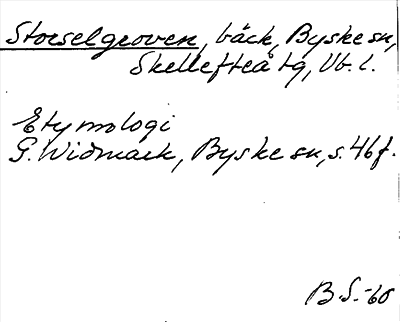 Storselgroven, bäck, Byske sn,
Skellefteå tg, Vb. l.
Etymologi
G. Widmark, Byske sn, s. 46 f.
B.S.-60